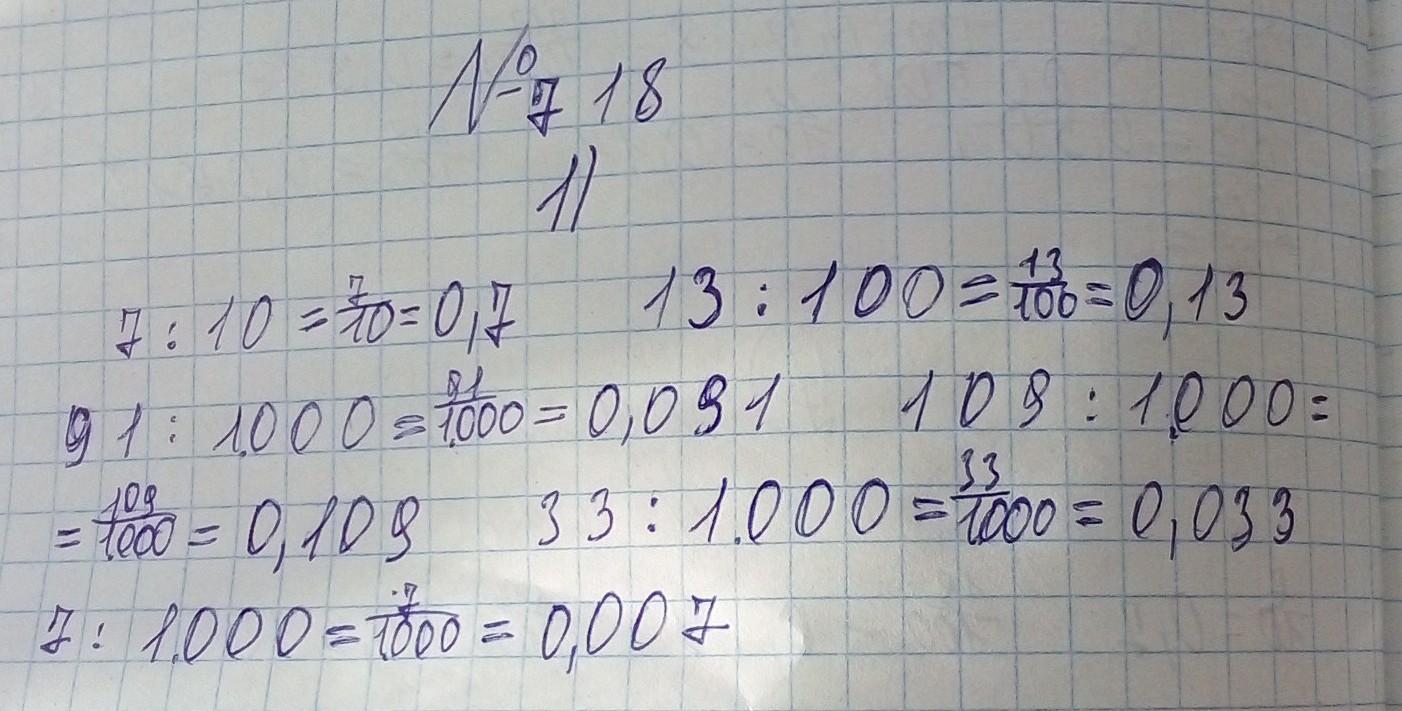 № 718
1)
7 : 10 = 7/10 = 0,7 13 : 100 = 13/100 = 0,13
91 : 1.000 = 91/1.000 = 0,091 109 : 1.000 =
= 109/1000 = 0,109 33 : 1.000 = 33/1000 = 0,033
7 : 1.000 = 7/1000 = 0,007